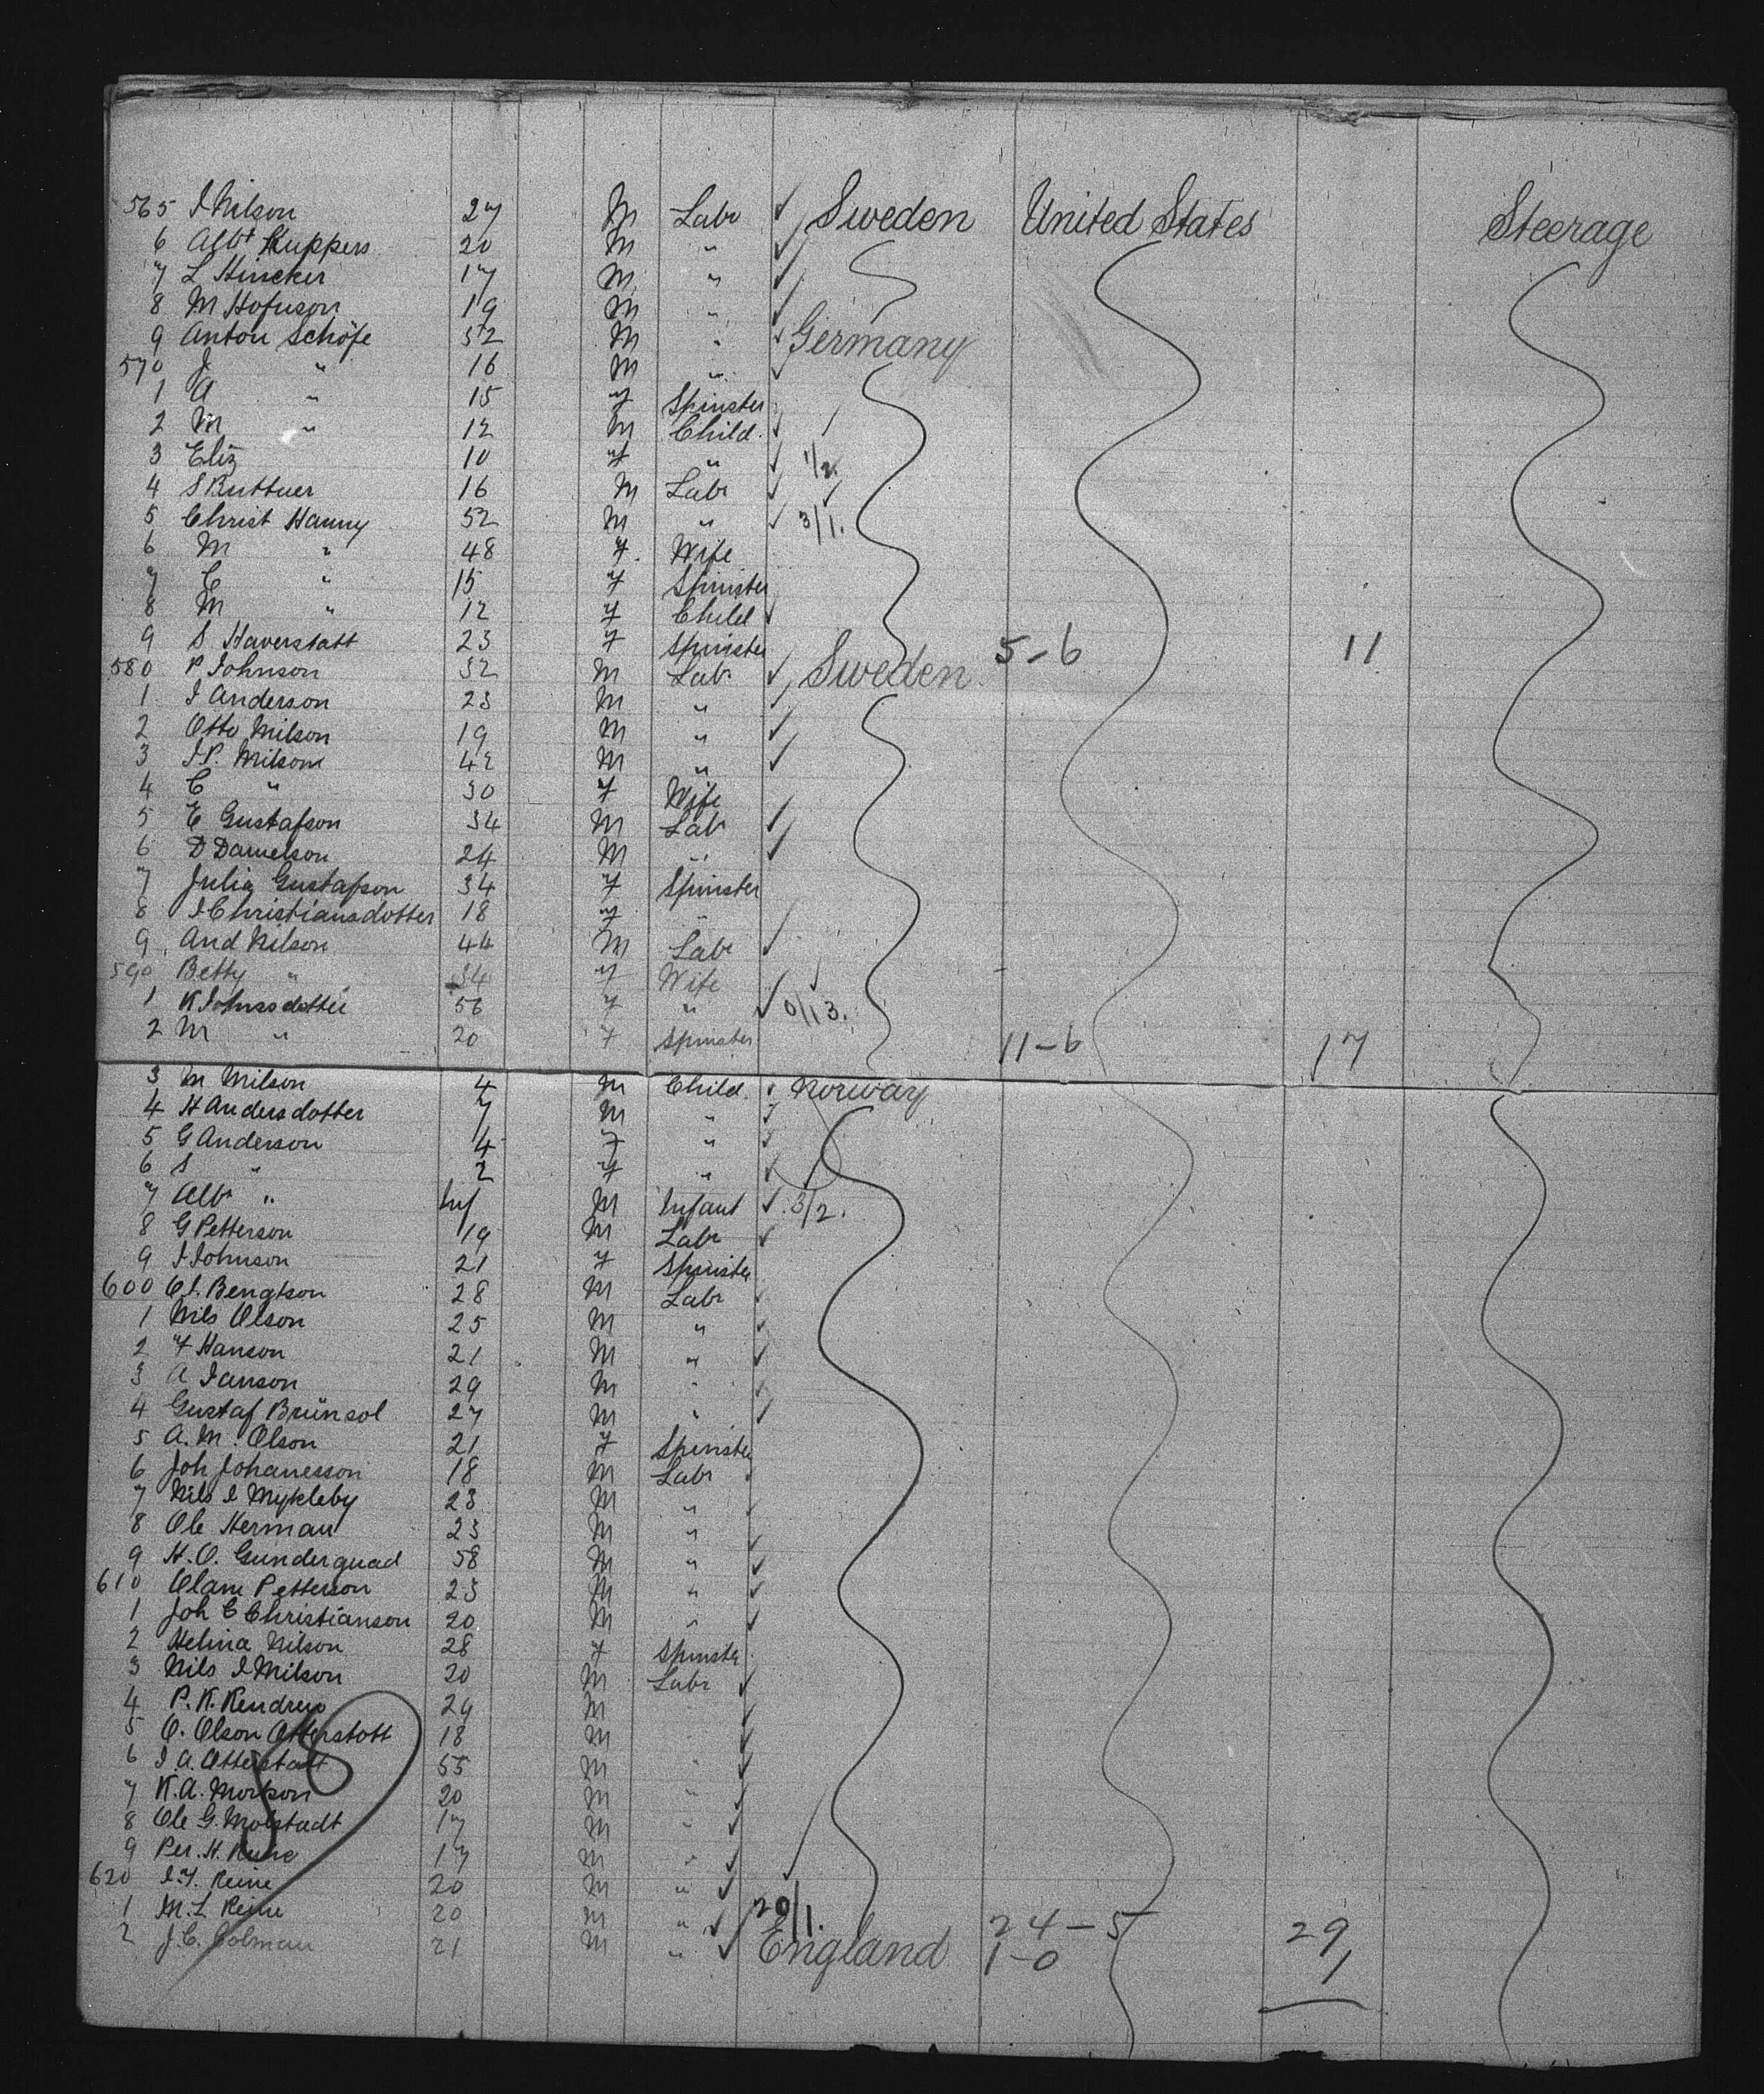 565 I Nilson 27 M Labr ✓ Sweden United States Steerage
6 Albt Kuppers 20 M " ✓
7 L Hincker 17 M " ✓
8 M Hofuson 19 M " ✓
9 Anton Schöfe 52 M " ✓ Germany
570 J " 16 M " ✓
1 A " 15 f Spinster
2 M " 12 M Child. ✓
3 Eliz 10 f " ✓ 1/2.
4 S Buttner 16 M Labr ✓
5 Christ Hanny 52 M " ✓ 3/1.
6 M " 48 f. Wife
7 C " 15 f Spinster
8 M " 12 f Child ✓
9 S Haverstatt 23 f Spinster 5-6 11
580 P Johnson 32 M Labr ✓ Sweden
1 I Anderson 23 M " ✓
2 Otto Nilson 19 M " ✓
3 I.P. Nilson 42 M " ✓
4 C " 30 f Wife
5 E Gustafson 34 M Labr ✓
6 D Danielson 24 M " ✓
7 Julia Gustafson 34 f Spinster
8 I Christiansdotter 18 f "
9 And Nilson 44 M Labr ✓
590 Betty " 34 f Wife
1 K Johnsdotter 56 f " ✓ 0/13.
2 M " 20 f Spinster 11-6 17
3 M Nilson 4 M Child. ✓ Norway
4 H Andersdotter 7 M " ✓
5 G Anderson 4 f " ✓
6 S " 2 f " ✓
7 Albr " Inf M Infant ✓ 3/2.
8 G Petterson 19 M Labr ✓
9 I Johnson 21 f Spinster
600 C.I. Bengtson 28 M Labr ✓
1 Nils Olson 25 M " ✓
2 F Hanson 21 M " ✓
3 A Ianson 29 M " ✓
4 Gustaf Brünsol 27 M " ✓
5 A. M. Olson 21 f Spinster
6 Joh Johanesson 18 M Labr
7 Nils I Mykleby 23 M " ✓
8 Ole Herman 23 M " ✓
9 H. O. Gunderquad 58 M " ✓
610 Olam Petterson 23 M " ✓
1 Joh C Christianson 20 M " ✓
2 Helina Nilson 28 f Spinster
3 Nils I Nilson 20 M Labr ✓
4 P. K. Kendrup 29 M ✓
5 O. Olson Otterstatt 18 M " ✓
6 I A. Otterstatt 55 M " ✓
7 K. A. Morkson 20 M " ✓
8 Ole G. Molstadt 17 M " ✓
9 Per. H. Reine 17 M " ✓
620 I.F. Reine 20 M " ✓
1 M. L Reine 20 M " ✓ 20/1. 24-5 29
2 J. C. Colman 21 M " ✓ England 1-0 1